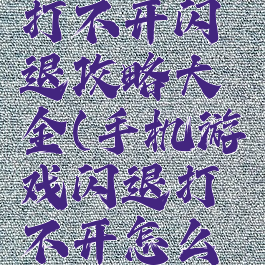 打不开闪
退攻略大
全(手机游
戏闪退打
不开怎么